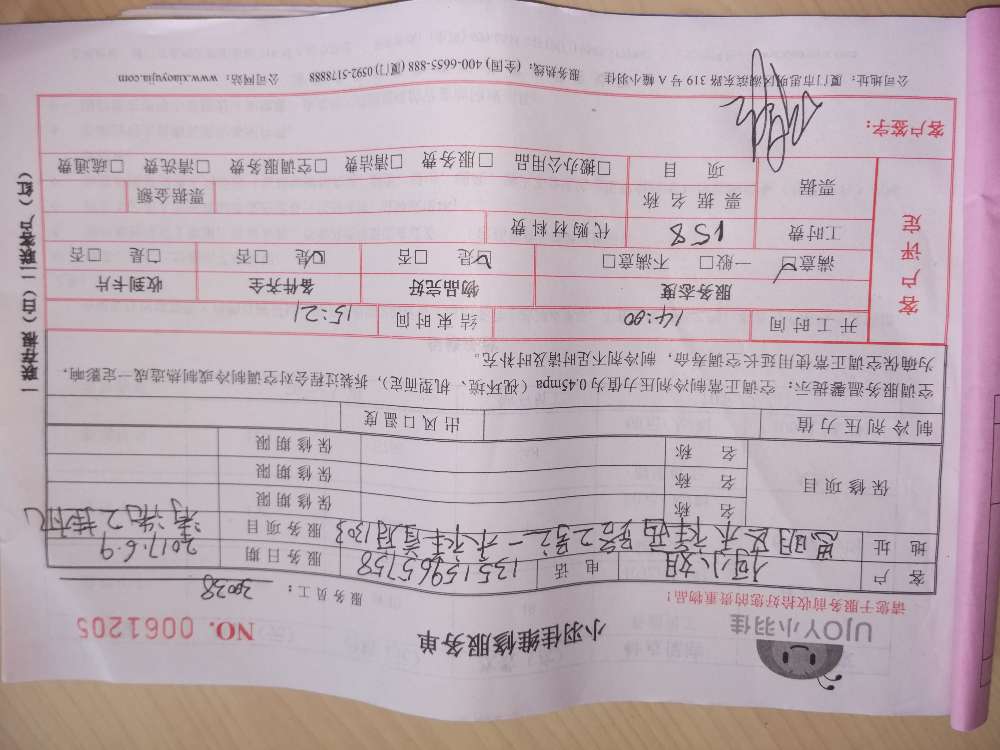 UJOY小羽佳
小羽佳维修服务单
NO. 0061205
请您于服务前收拾好您的贵重物品！
服务员工：30028
客户 何小姐 电话 13515965758 服务日期 2017.6.9
地址 思明区禾祥西路2号之一禾祥首府1303 服务项目 清洗2挂机
保修项目
名称 保修期限
名称 保修期限
名称 保修期限
制冷剂压力值 出风口温度
空调服务温馨提示：空调正常制冷剂压力值为0.45mpa（视环境、机型而定），拆装过程会对空调制冷或制热造成一定影响，
为确保空调正常使用延长空调寿命，制冷剂不足时请及时补充。
开工时间 14:00 结束时间 15:21
客户评定
服务态度 物品完好 备件齐全 收到卡片
满意☑ 一般□ 不满意□ 是☑ 否□ 是☑ 否□ 是□ 否□
工时费 158 代购材料费
票据 票据名称 票据金额
项目 □搬办公用品 □服务费 □清洁费 □空调服务费 □清洗费 □疏通费
客户签字：
公司地址：厦门市思明区湖滨东路319号A幢小羽佳 服务热线：(全国) 400-6655-888 (厦门) 0592-5178888 公司网站：www.xiaoyujia.com
一联存根（白）二联客户（红）